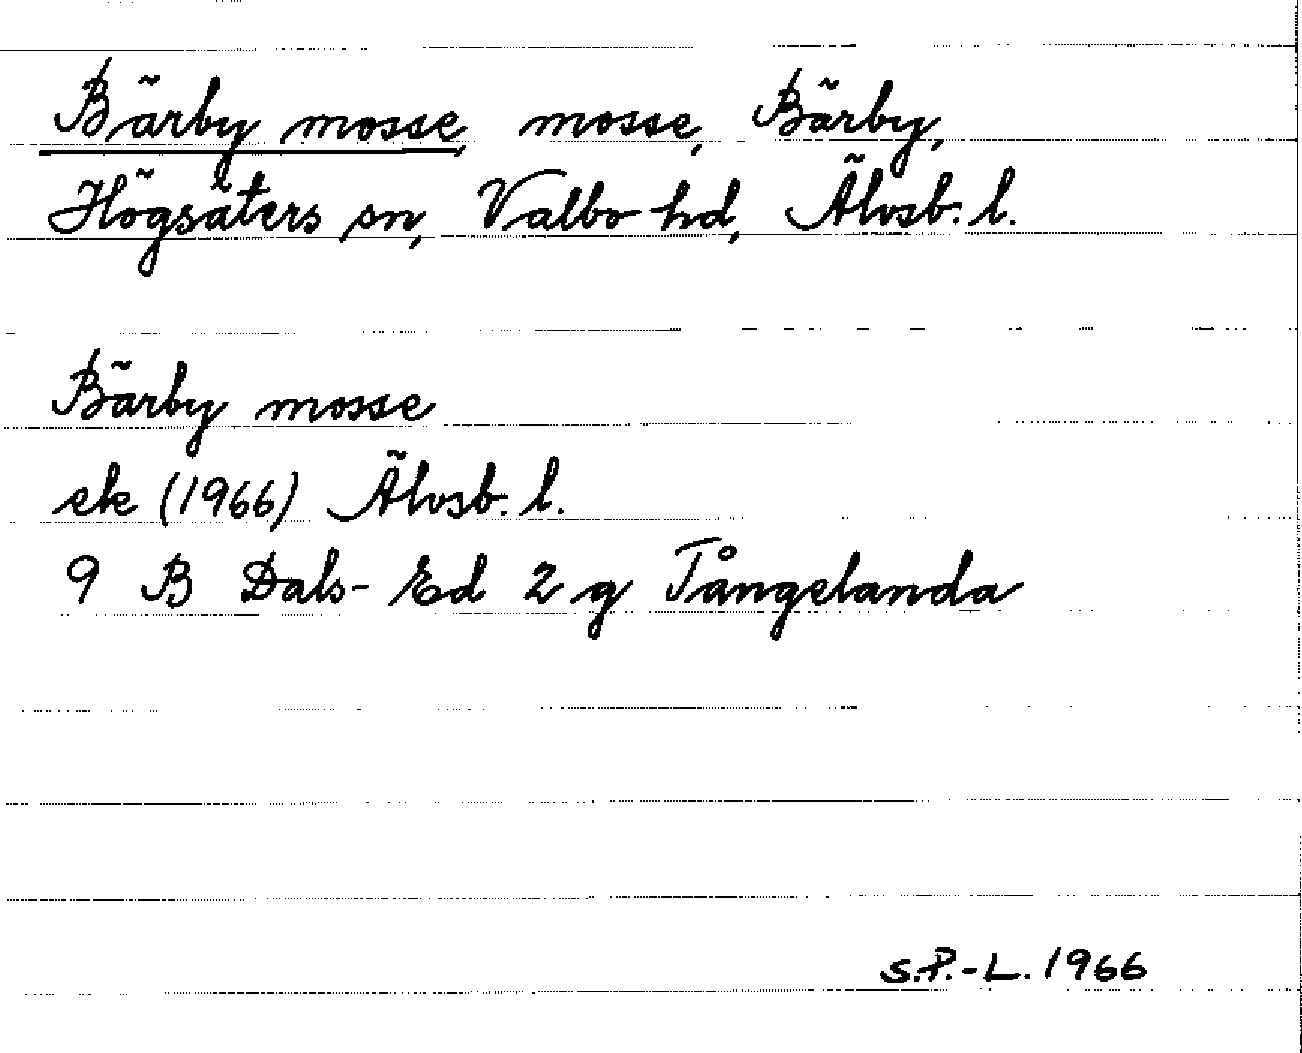 Bärby mosse, mosse, Bärby,
Högsäters sn, Valbo hd, Älvsb. l.
Bärby mosse
ek (1966) Älvsb. l.
9 B Dals-Ed 2 g Tångelanda
S.P.-L. 1966